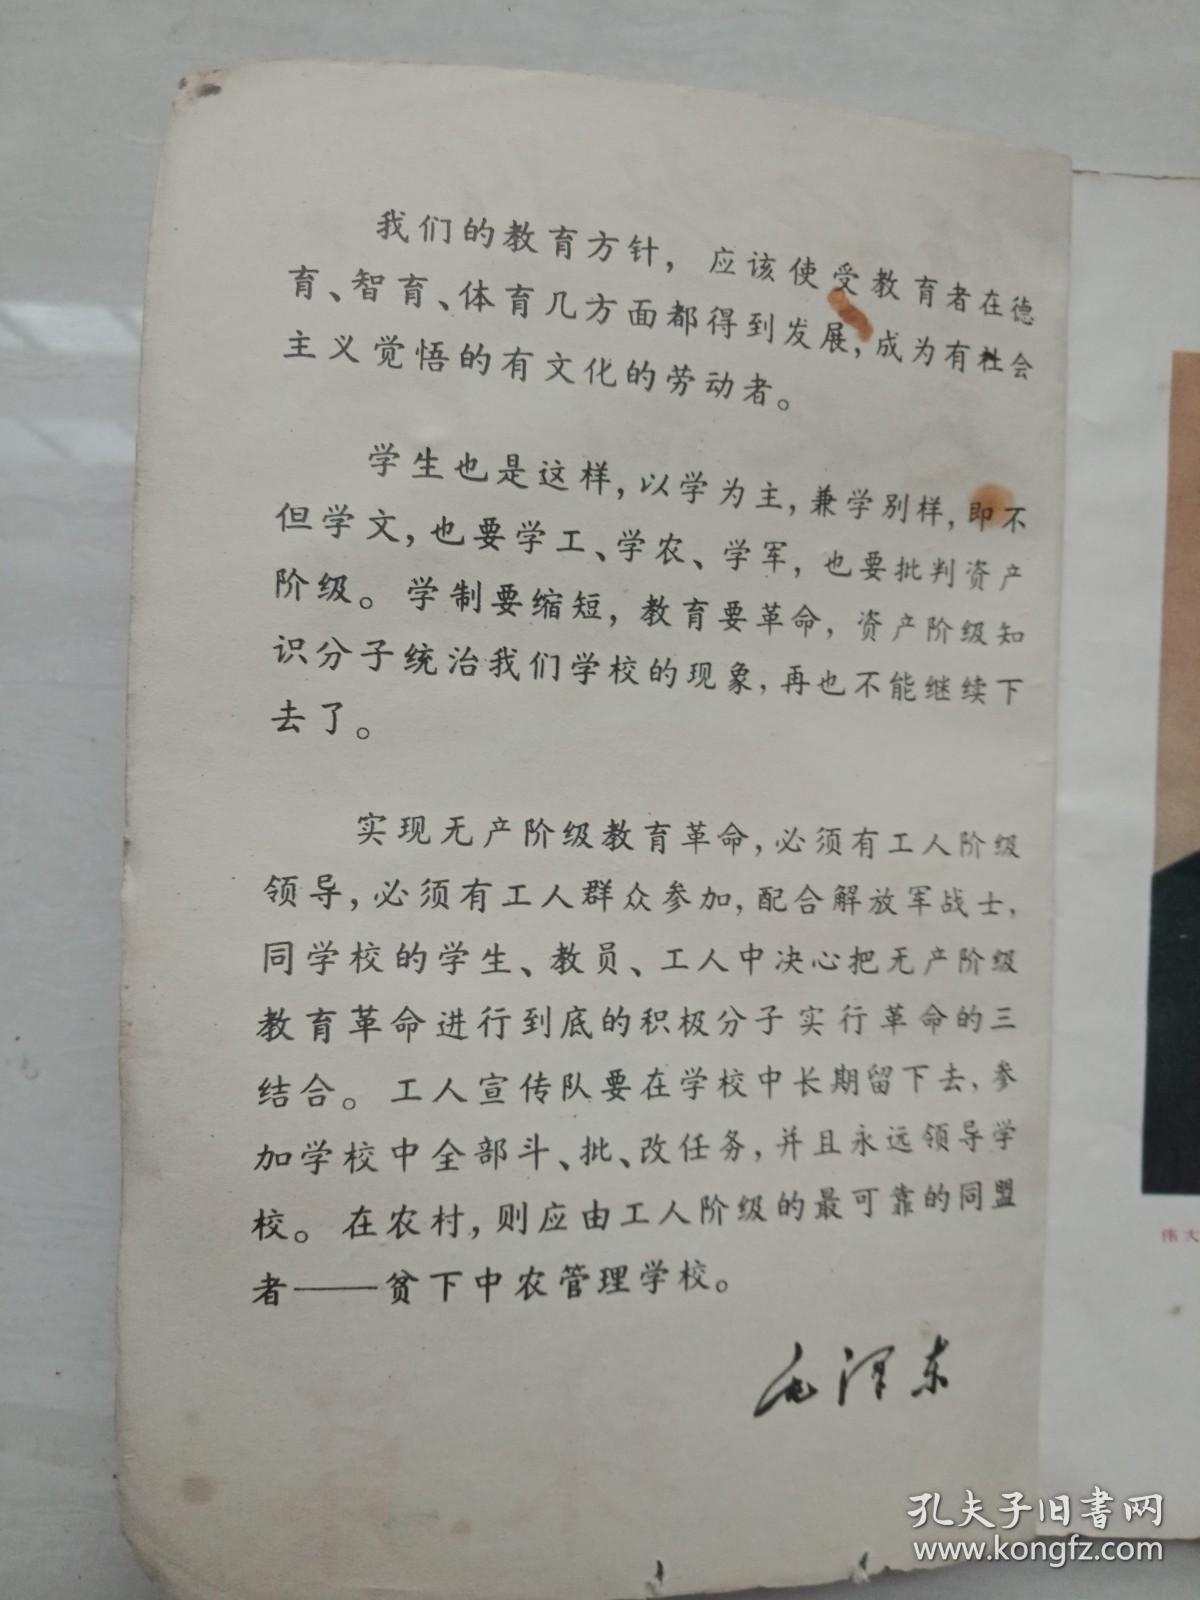 我们的教育方针，应该使受教育者在德
育、智育、体育几方面都得到发展，成为有社会
主义觉悟的有文化的劳动者。
学生也是这样，以学为主，兼学别样，即不
但学文，也要学工、学农、学军，也要批判资产
阶级。学制要缩短，教育要革命，资产阶级知
识分子统治我们学校的现象，再也不能继续下
去了。
实现无产阶级教育革命，必须有工人阶级
领导，必须有工人群众参加，配合解放军战士，
同学校的学生、教员、工人中决心把无产阶级
教育革命进行到底的积极分子实行革命的三
结合。工人宣传队要在学校中长期留下去，参
加学校中全部斗、批、改任务，并且永远领导学
校。在农村，则应由工人阶级的最可靠的同盟
者——贫下中农管理学校。
毛泽东
伟大
孔夫子旧书网
www.kongfz.com